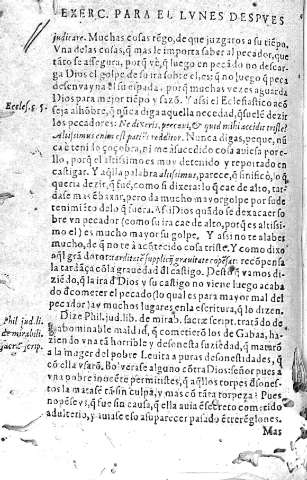 EXERC. PARA EL LVNES DESPVES
judicare. Muchas cosas tẽgo, de que juzgaros a su tiẽpo.
Vna de las cosas, q̃ mas le importa saber al pecador, que
tãto se assegura, porq̃ vè, q̃ luego en pecãdo no descar-
ga Dios el golpe de su ira sobre el, es; q̃ no luego q̃ peca
desenvayna el su espada, porq̃ muchas vezes aguarda
Dios para mejor tiẽpo y sazõ. Y assi el Eclesiastico acõ
seja al hõbre, q̃ nũca diga aquella necedad, q̃ suelẽ dezir
Eccles. 5.
los pecadores: Ne dixeris, peccavi, & quid mihi accidit triste?
Altissimus enim est patiẽs redditor. Nunca digas, peque, nũ
ca è teni lo çoçobra, ni me à sucedido cosa aviesa por e-
llo, porq̃ el altissimo es muy detenido y reportado en
castigar. Y aq̃lla palabra altissimus, parece, q̃ sinificò, lo q̃
queria dezir, q̃ fuè, como si dixera: lo q̃ cae de alto, tar-
dase mas ẽ baxar, pero da mucho mayor golpe por su de
tenimiẽto del q̃ fuera. Assi Dios quãdo se dexa caer so
bre vn pecador (como su ira cae de alto, porq̃ es altissi-
mo el) es mucho mayor su golpe. Y assi no te alabes
mucho, de q̃ no te à acõtecido cosa triste. Y como dixo
aq̃l grã dotor: tarditatẽ supplicij gravitate cõpẽsat: recõpensa
la tardãça cõ la gravedad dl castigo. Desto q̃ vamos di-
ziẽdo, q̃ la ira d̃ Dios y su castigo no viene luego acaba
do d̃ cometer el pecado (lo qual es para mayor mal del
pecador) ay muchos lugares en la escritura, q̃ lo dizen.
Phil. jud. li.
de mirabili.
sacræ scrip.
Dize Phil. jud. lib. de mirab. sacræ script. tratãdo de
abominable maldad, q̃ cometierõ los de Gabaa, ha-
ziendo vna tã horrible y desonesta suziedad, q̃ matarõ
a la muger del pobre Levita a puras desonestidades, q̃
cõ ella vsarõ. Bolverase alguno cõtra Dios: señor pues a
vna pobre inocẽte permitistes, q̃ aq̃llos torpes d̃sones-
tos la matasẽ tã sin culpa, y mas cõ tãta torpeza? Pues
no pẽseys, q̃ fue sin causa, q̃ ella avia ẽ secreto cometido
adulterio, y
Mas